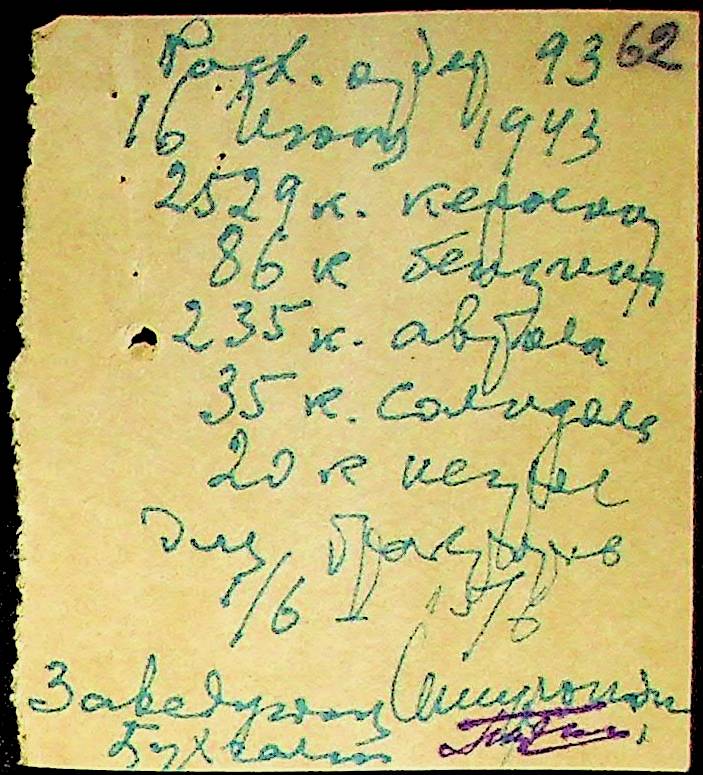 Расх. ордер 93 62
16 Июня 1943
2529 к. керосина
86 к бензина
235 к. автола
35 к. солидола
20 к
Для тракторов
1/6 - 15/6
Заведующий
Бухгалтер